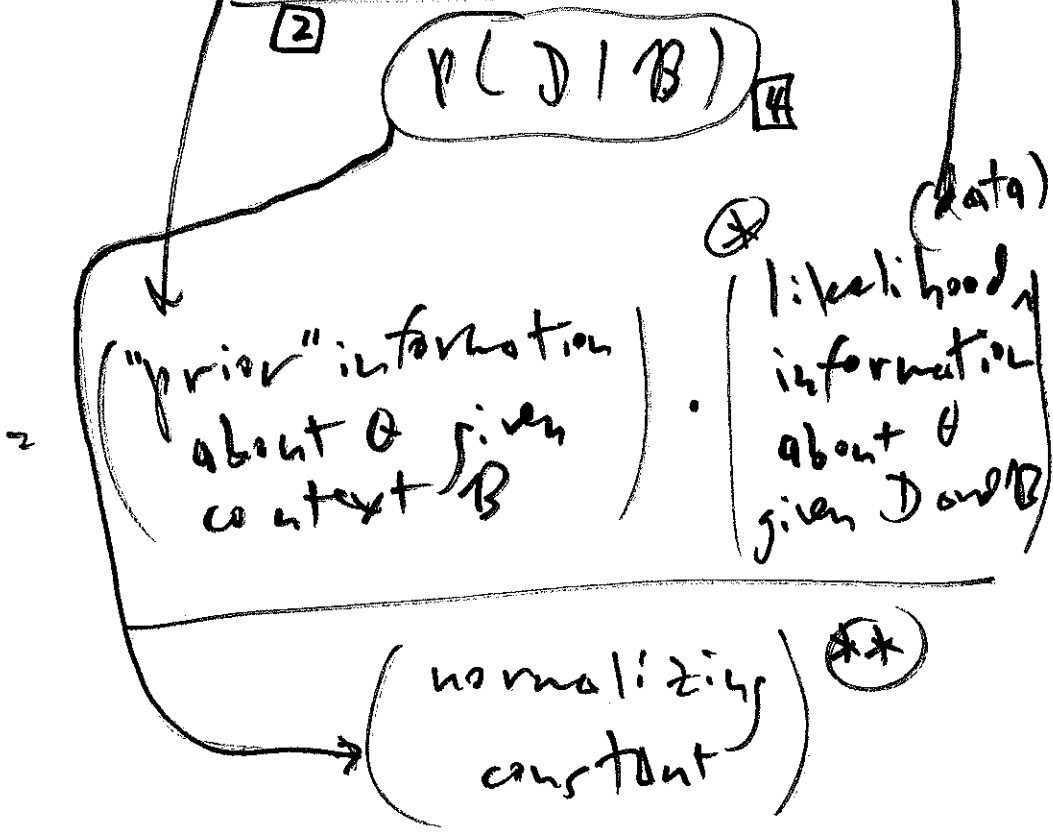 2
p( D | B )
4
*
(data)
= ("prior" information
about θ given
context B)
·
(likelihood
information
about θ
given D and B)
(normalizing
constant)
**